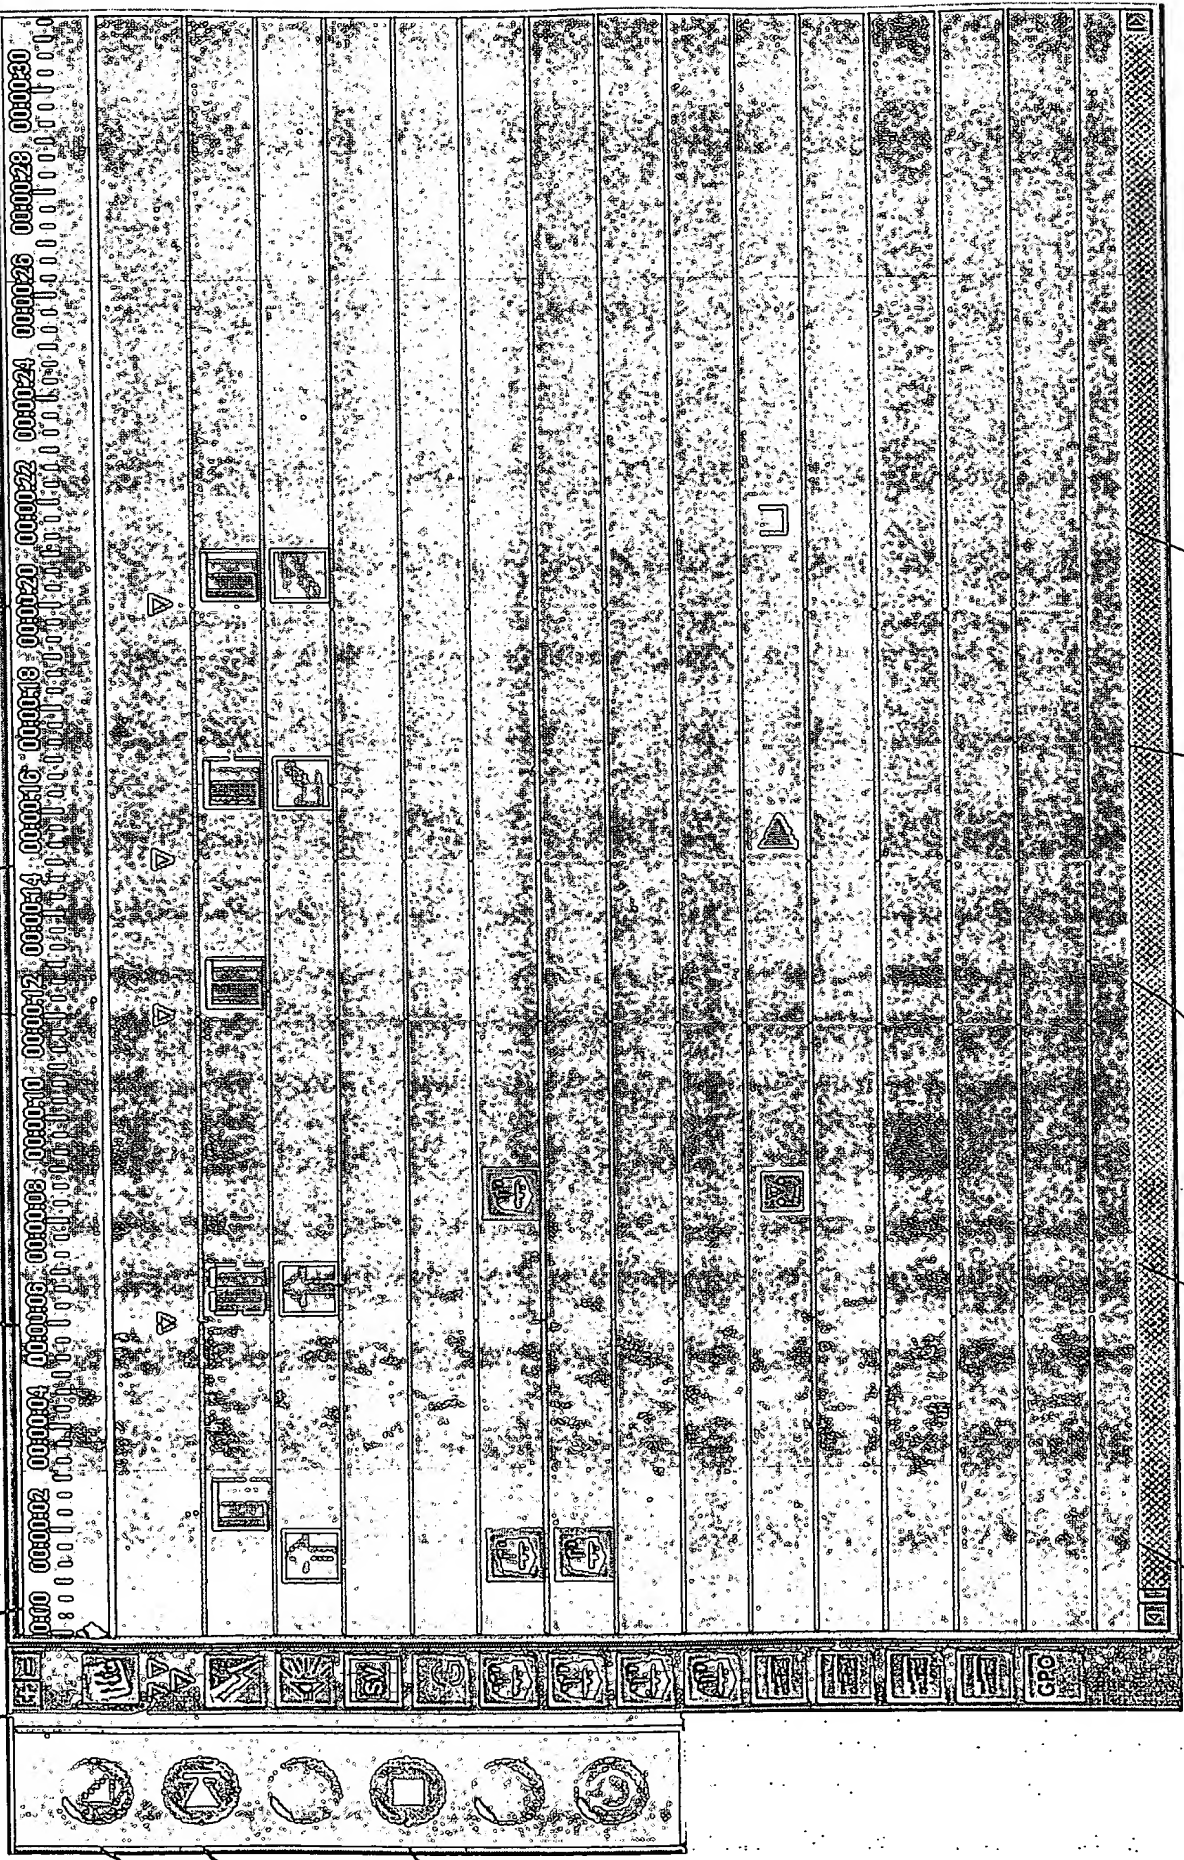 00:00 00:00:02 00:00:04 00:00:06 00:00:08 00:00:10 00:00:12 00:00:14 00:00:16 00:00:18 00:00:20 00:00:22 00:00:24 00:00:26 00:00:28 00:00:30
SV
GPO